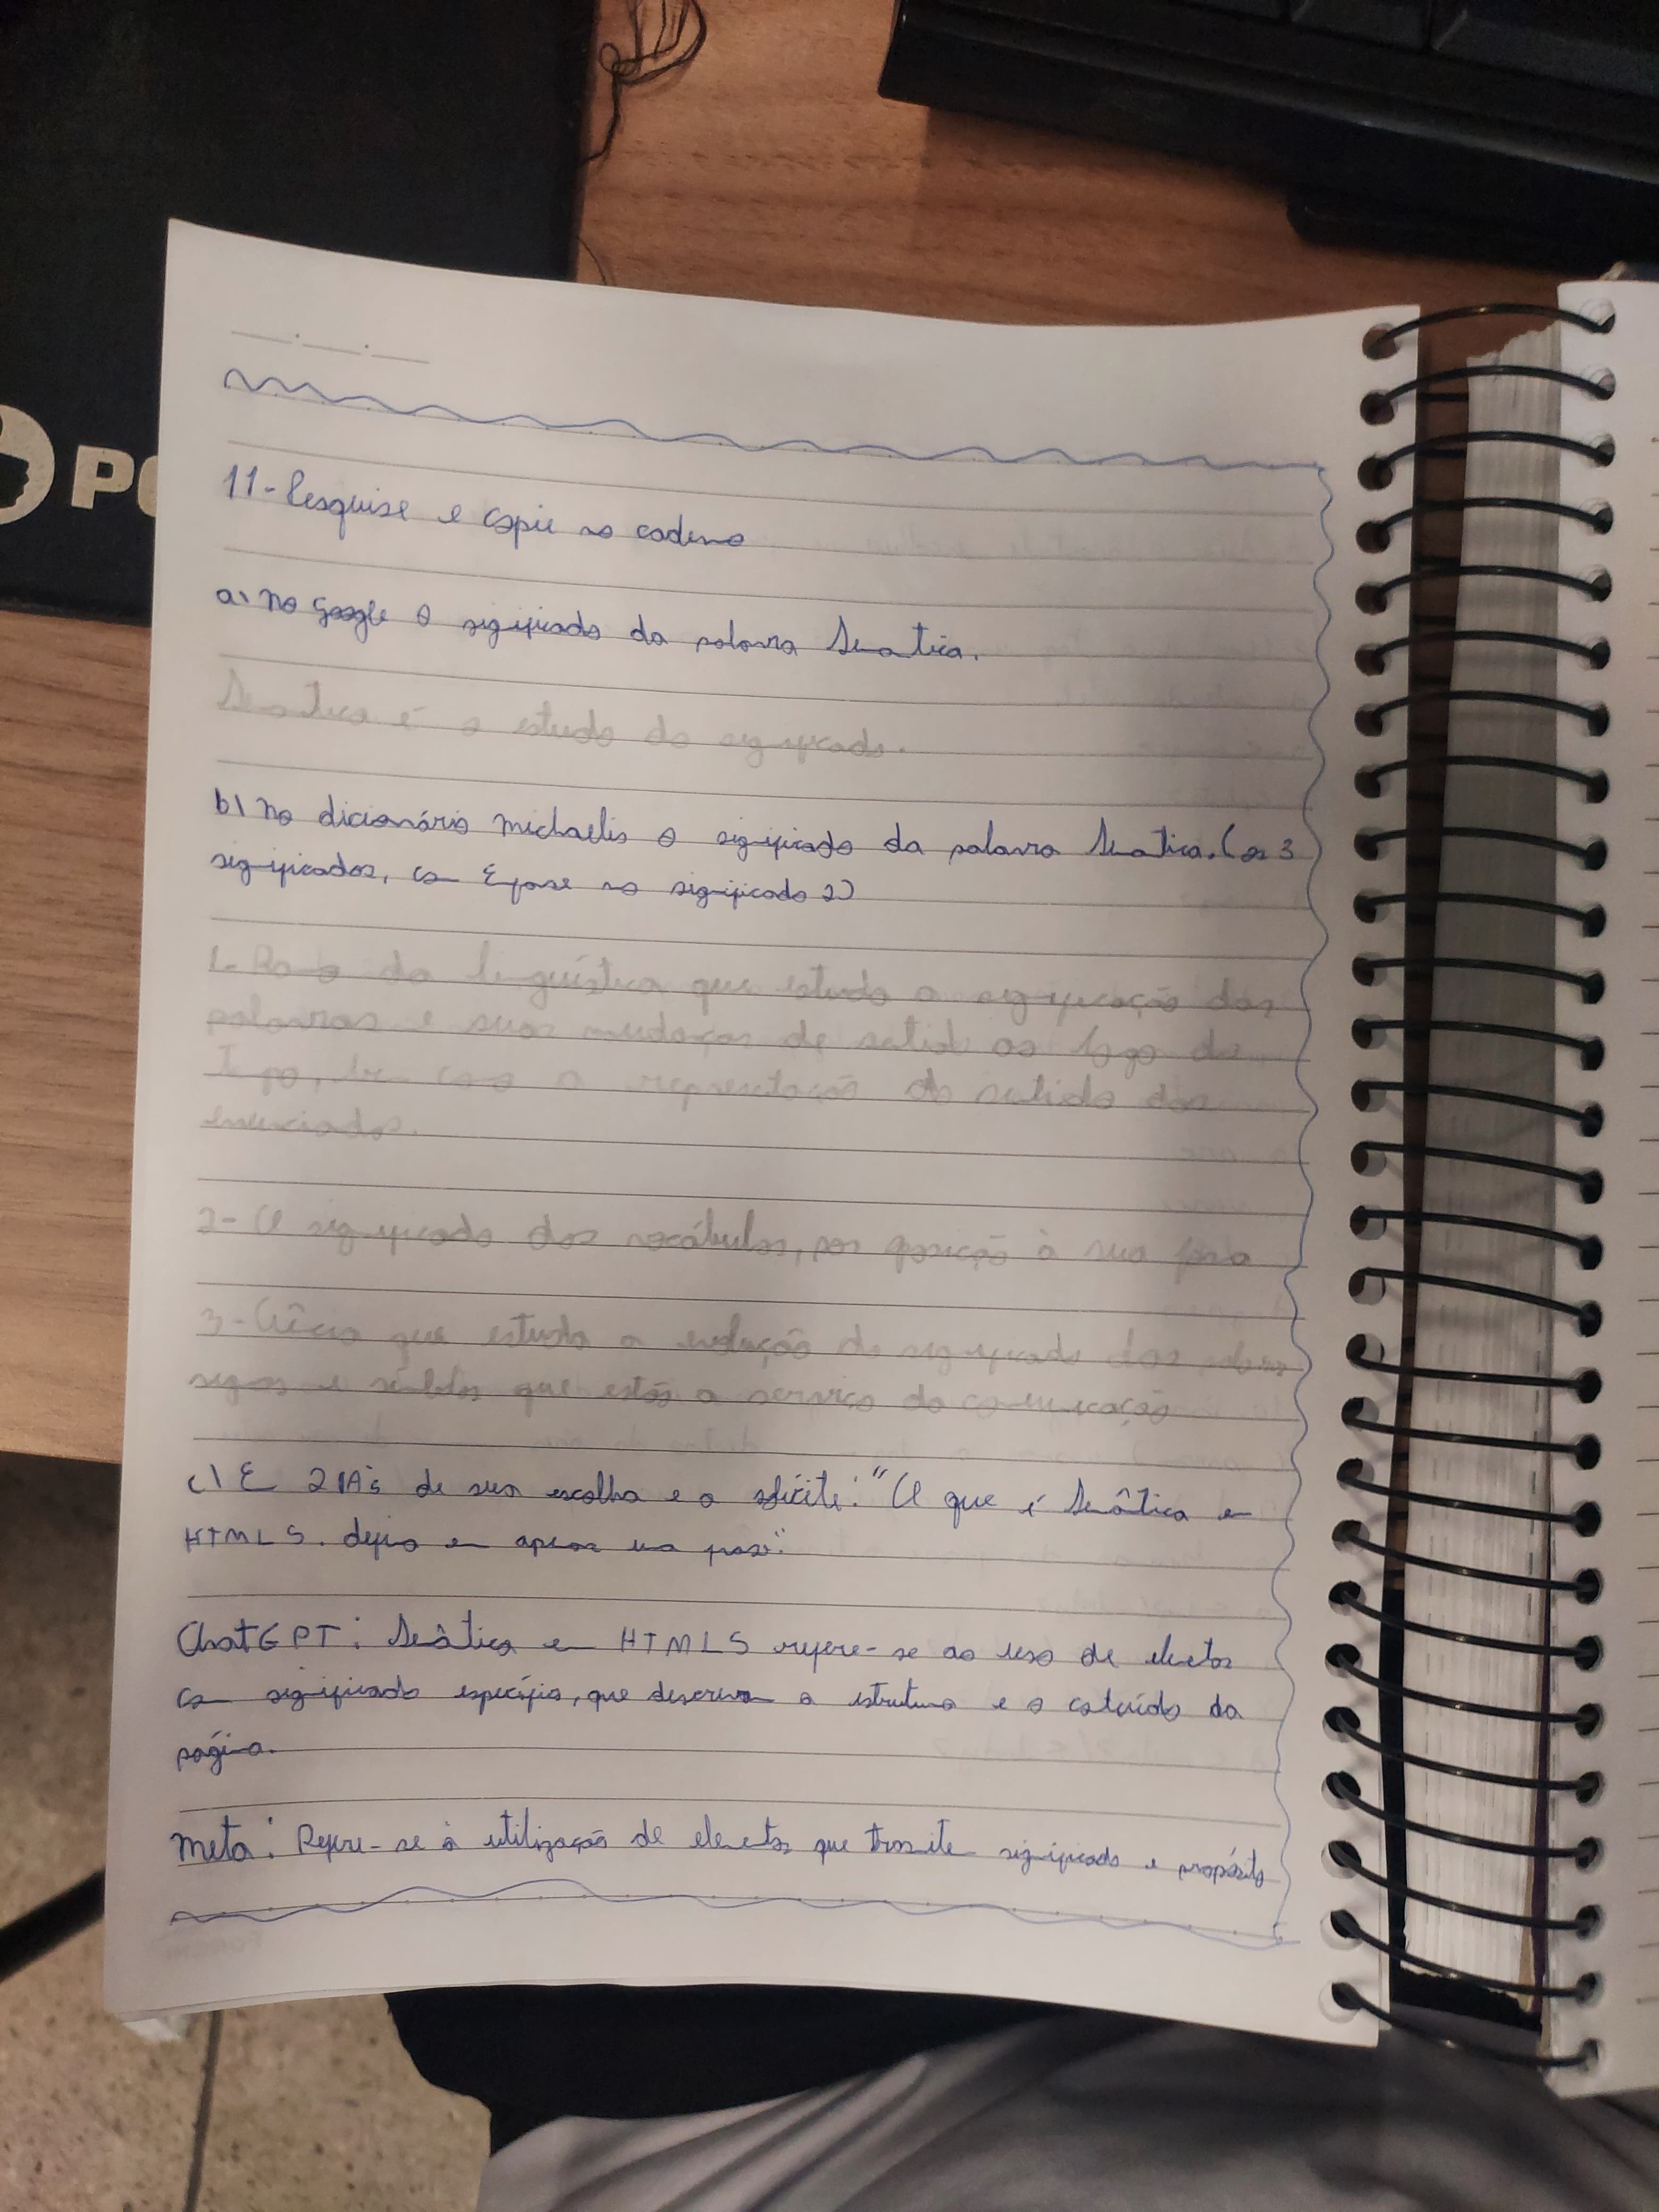 PO
11- Pesquise e copie no caderno
a) No Google o significado da palavra Semântica.
Semântica é o estudo do significado.
b) No dicionário michaelis o significado da palavra Semântica. (os 3
significados, com Enfase no significado 2)
1- Ramo da linguística que estuda a significação das
palavras e suas mudanças de sentido ao longo do
Tempo, bem como a representação do sentido dos
enunciados.
2- O significado dos vocábulos, por oposição à sua forma
3- Ciência que estuda a evolução do significado das palavras
signos e símbolos que estão a serviço da comunicação
c) Em 2 IA's de sua escolha e a solicite: "O que é Semântica em
HTML5. defina em apenas uma frase".
ChatGPT: Semântica em HTML5 refere-se ao uso de elementos
com significado específico, que descrevem a estrutura e o conteúdo da
página.
Meta: Refere-se à utilização de elementos que transmitem significado e propósito